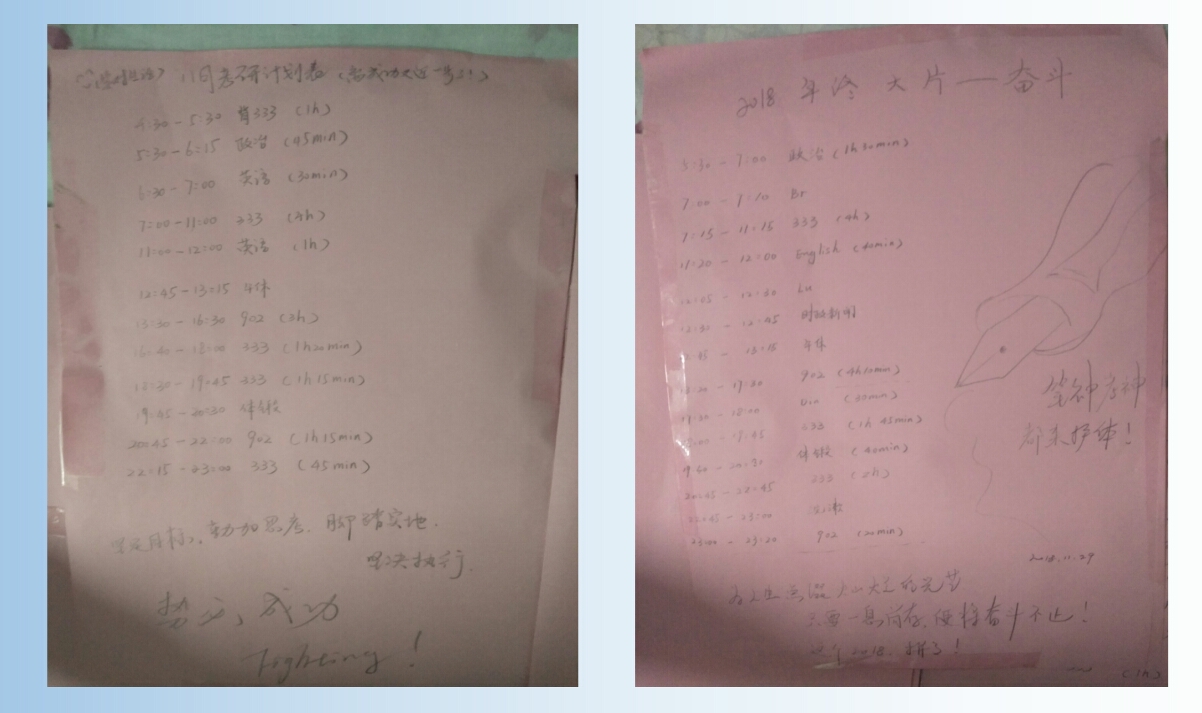 11月考研计划表
4:30-5:30 背333 (1h)
5:30-6:15 政治 (45min)
6:30-7:00 英语 (30min)
7:00-11:00 333 (4h)
11:00-12:00 英语 (1h)
12:45-13:15 午休
13:30-16:30 902 (3h)
16:40-18:00 333 (1h20min)
18:30-19:45 333 (1h15min)
19:45-20:30 体锻
20:45-22:00 902 (1h15min)
22:15-23:00 333 (45min)
坚定目标, 勤加思考, 脚踏实地,
坚决执行.
努力, 成功
Fighting!
2018 年终 大片——奋斗
5:30-7:00 政治 (1h30min)
7:00-7:10 Br
7:15-11:15 333 (4h)
11:20-12:00 English (40min)
12:05-12:30 Lu
12:30-12:45 时政新闻
12:45-13:15 午休
13:20-17:30 902 (4h10min)
17:30-18:00 Din (30min)
18:00-19:45 333 (1h45min)
体锻 (40min)
20:45-22:45 333 (2h)
22:45-23:00 洗漱
23:00-23:20 902 (20min)
笔神考神
都来护体!
2018.11.29
为人生点燃
只要一息尚存, 便将奋斗不止!
2018, 拼了!
(1h)